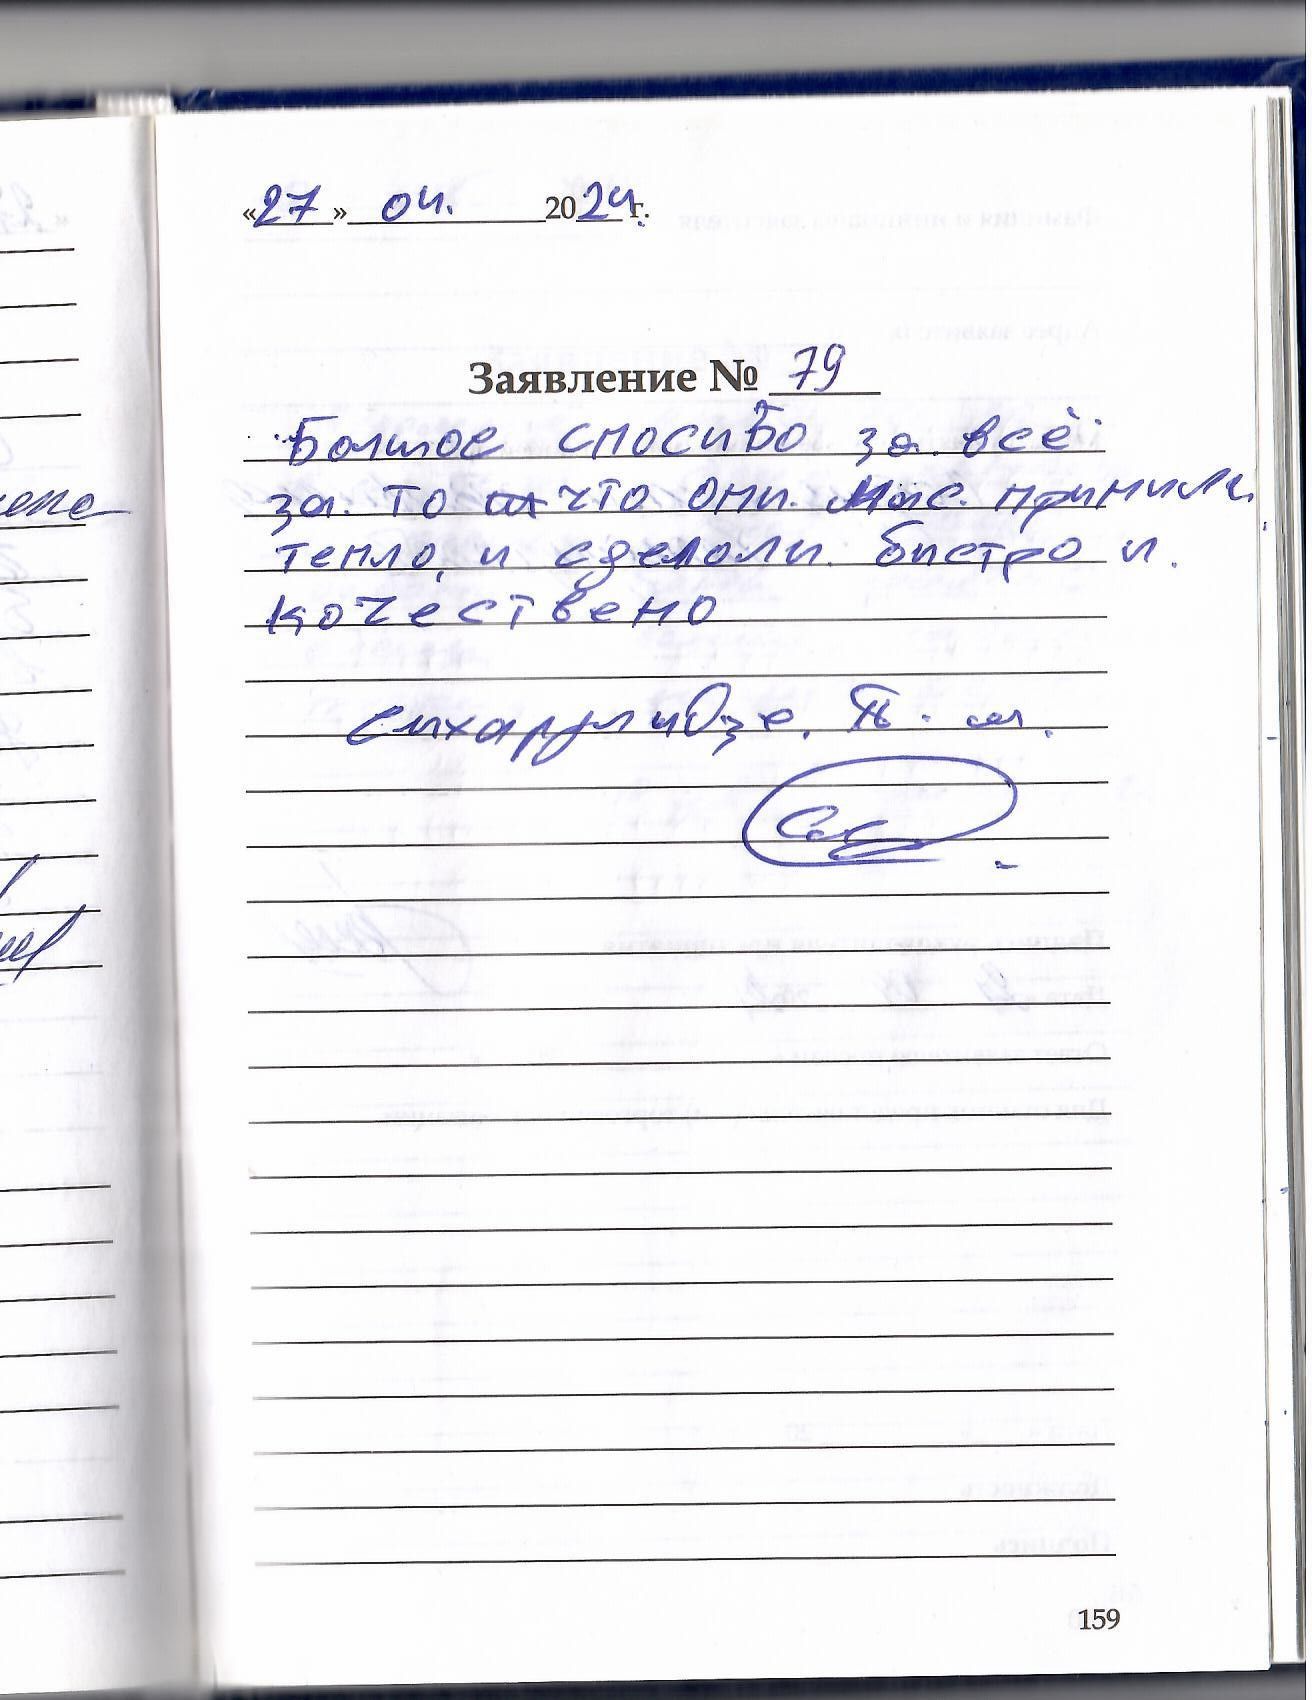 «27» 04. 2024 г.
Заявление № 79
Болшое спосибо за всё
за то что они нас принили
тепло, и сделоли бистро и
кочествено
сихарулидзе.
159